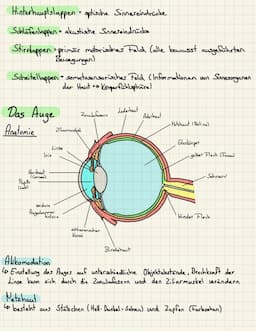 Hinterhauptslappen → optische Sinneseindrücke
Schläfenlappen → akustische Sinneseindrücke
Stirnlappen → primär motorisches Feld (alle bewusst ausgeführten
Bewegungen)
Scheitellappen → somatosensorisches Feld (Informationen von Sinnesorganen
der Haut → Körperfühlsphäre)
Das Auge
Anatomie
Zonulafasern
Lederhaut
Aderhaut
Ziliarmuskel
Netzhaut (Retina)
Linse
Iris
Glaskörper
gelber Fleck (Fovea)
Hornhaut
(Cornea)
Pupille
Sehnerv
vordere
Augenkammer
hintere
blinder Fleck
Bindehaut
Akkomodation
↳ Einstellung des Auges auf unterschiedliche Objektabstände, Brechkraft der
Linse kann sich durch die Zonulafasern und den Ziliarmuskel verändern
Netzhaut
↳ besteht aus Stäbchen (Hell-Dunkel-Sehen) und Zapfen (Farbsehen)